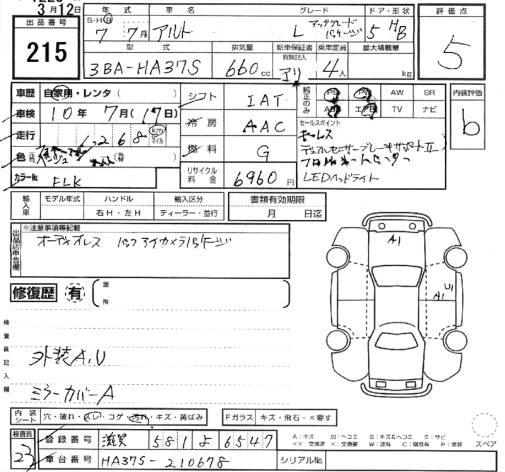 3月12日
出品番号
215
年式
S・H・R
7年7月
車名
アルト
グレード
L アップグレードパッケージ
ドア・形状
5 HB
評価点
5
型式
3BA-HA37S
排気量
660cc
新車保証書
有無記入
アリ
乗車定員
4人
最大積載量
kg
車歴 自家用・レンタ( )
車検 10年7月(17日)
走行
km マイル
色
カラーNo.
シフト IAT
冷房 AAC
燃料 G
リサイクル料金 6960円
純正のみ
PS PW AW SR
AB TV ナビ
セールスポイント
キーレス
デュアルセンサーブレーキサポートII
LEDヘッドライト
内装評価
b
輸入車
モデル年式 ハンドル 輸入区分
右H・左H ディーラー・並行
書類有効期限
月 日迄
出品店申告欄
※注意事項等記載
オーディオレス バックアイカメラパッケージ
修復歴 有
箇所
検査員記入欄
外装A,U
ミラーカバーA
A1
U1
A1
内装シート 穴・破れ・スレ・コゲ・汚れ・キズ・黄ばみ
Fガラス キズ・飛石・×要す
検査員
23
登録番号 滋賀 581 よ 6547
車台番号 HA37S-210678
シリアルNo.
A:キズ U:ヘコミ B:キズ&ヘコミ S:サビ
××:交換済 ×:要交換 W:波有 C:腐食有 P:要塗装
スペア